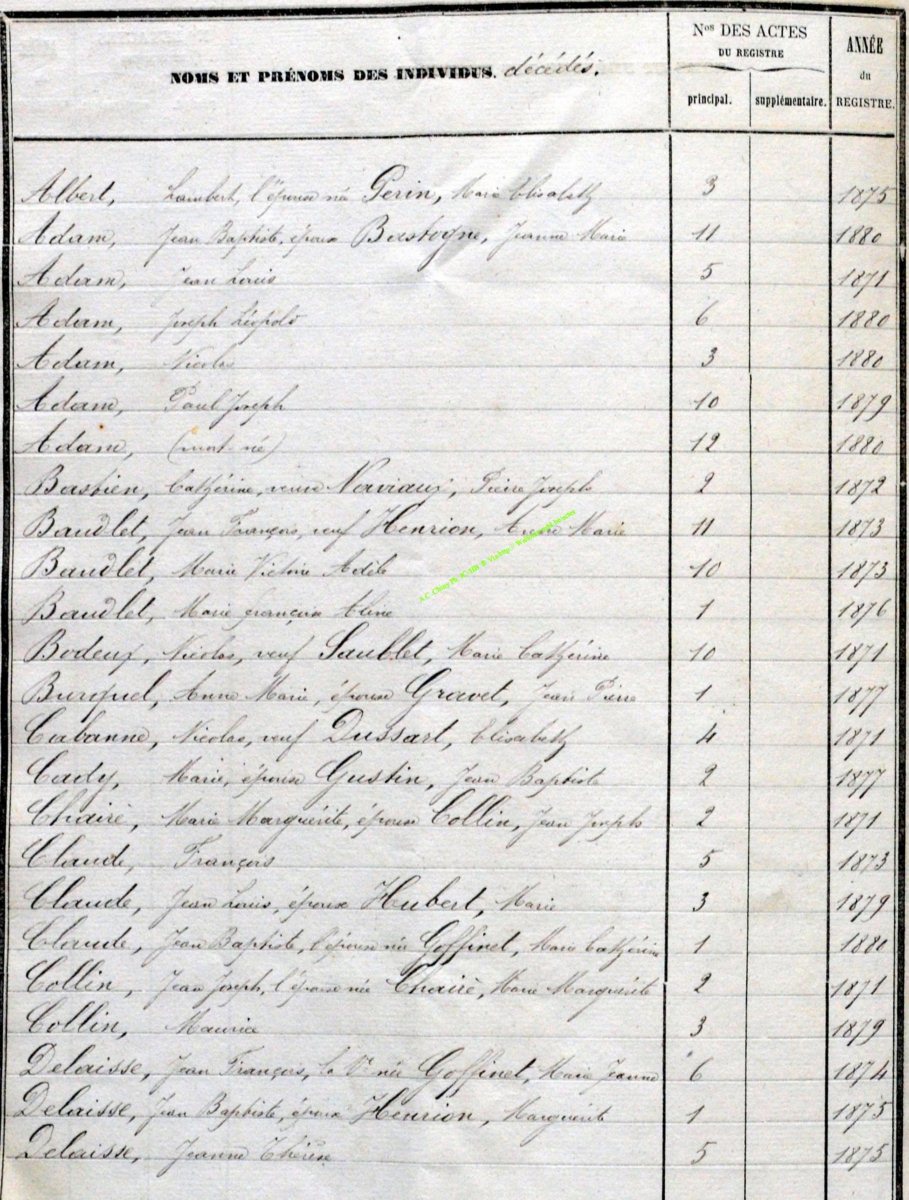 NOMS ET PRÉNOMS DES INDIVIDUS. décédés.
Nos DES ACTES
DU REGISTRE
principal. supplémentaire.
ANNÉE
du
REGISTRE.
Albert, Lambert, l'épouse née Perin, Marie Elisabeth 3 1875
Adam, Jean Baptiste, époux Bastogne, Jeanne Marie 11 1880
Adam, Jean Louis 5 1871
Adam, Joseph Léopold 6 1880
Adam, Nicolas 3 1880
Adam, Paul Joseph 10 1879
Adam, (mort-né) 12 1880
Bastien, Cathérine, veuve Noviaux, Pierre Joseph 2 1872
Baudlet, Jean François, veuf Henrion, Anne Marie 11 1873
Baudlet, Marie Victoire Adèle 10 1873
Baudlet, Marie françoise Aline 1 1876
Bodeux, Nicolas, veuf Saublet, Marie Cathérine 10 1871
Burquel, Anne Marie, épouse Gravet, Jean Pierre 1 1877
Cabanne, Nicolas, veuf Dussart, Elisabeth 4 1871
Cady, Marie, épouse Gustin, Jean Baptiste 2 1877
Chairè, Marie Marguérite, épouse Collin, Jean Joseph 2 1871
Claude, François 5 1873
Claude, Jean Louis, époux Hubert, Marie 3 1879
Claude, Jean Baptiste, l'épouse née Goffinet, Marie Cathérine 1 1880
Collin, Jean Joseph, l'épouse née Chairè, Marie Marguérite 2 1871
Collin, Maurice 3 1879
Delaisse, Jean François, la Ve née Goffinet, Marie Jeanne 6 1874
Delaisse, Jean Baptiste, époux Henrion, Marguérite 1 1875
Delaisse, Jeanne Thérèse 5 1875